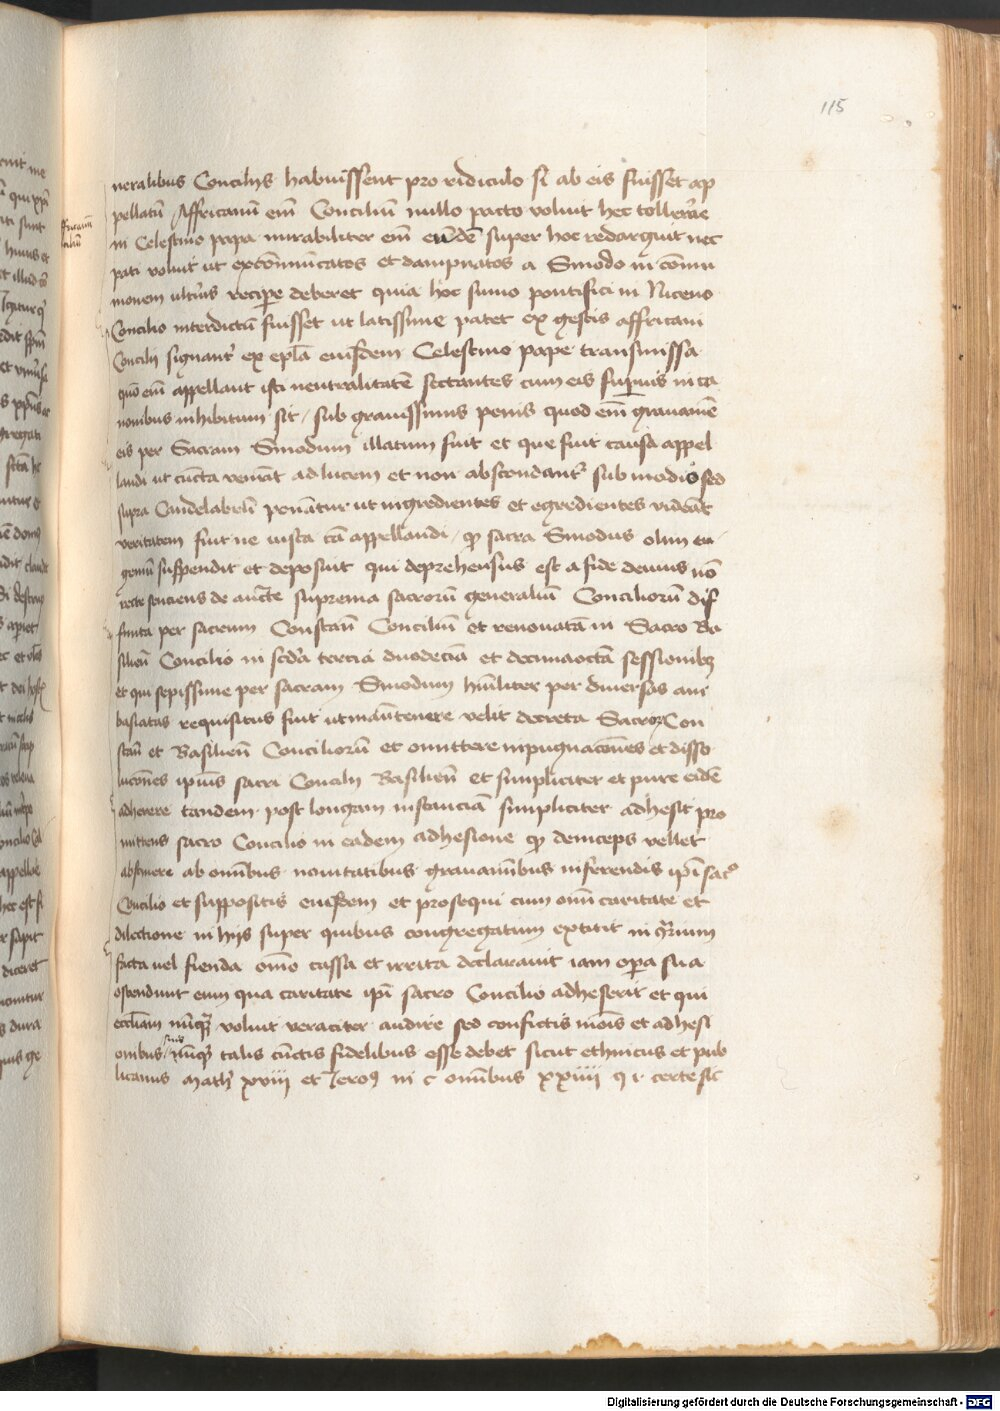 115
neralibus Concilijs habuissent pro ridiculo si ab eis fuisset ap
pellatū Affricanū em̄ Conciliū nullo pacto voluit hec tollerare
ni Celestino papa mirabiliter em̄ eūdē super hoc redarguit nec
pati voluit ut excōmunicatos et dampnatos a Sinodo in cōmu
nionem ulterius recipere deberet quia hoc sumo pontifici in Niceno
Concilio interdictū fuisset ut latissime patet ex gestis affricani
Concilij signanter ex epl̄a eiusdem Celestino pape transmissa
quō em̄ appellant isti neutralitatē sectantes cum eis superius in ca
nonibus inhibitum sit / sub gravissimis penis quod em̄ gravamē
eis per Sacram Sinodum illatum fuit et que fuit causa appel
landi ut cuncta veniāt ad lucem et non abscondantr̄ sub modio sed
supra Candelabrū ponātur ut ingredientes et egredientes videāt
veritatem fuit ne iusta cā appellandi / qz sacra Sinodus olim eu
genium suspendit et deposuit qui deprehensus est a fide devius nō
recte senciens de aucte suprema sacrorū generaliū Conciliorū dif
finita per sacrum Constan̄ Conciliū et renovatā in Sacro Ba
silien̄ Concilio in scd̄a tercia duodeciā et decimaoctā sessionibz
et qui sepissime per sacram Sinodum hūiliter per diversas am
basiatas requisitus fuit ut manutenere velit decreta Sacroꝝ Con
stan̄ et Basilien̄ Conciliorū et omittere inpugnacōnes et disso
lucōnes ipius sacri Concilij Basilien̄ et simpliciter et pure eidē
adherere tandem post longam instanciā simpliciter adhesit pro
mittens sacro Concilio in eadem adhesione qz deinceps vellet
abstinere ab omībus novitatibus gravamībus inferendis ip̄i sac°
Concilio et suppositis eiusdem et prosequi cum omī caritate et
dilectione in hijs super quibus congregatum extitit in 9rium
facta vel fienda om̄o cassa et irrita declaravit iam opera sua
ostendunt eum qua caritate ip̄i sacro Concilio adheserit et qui
eccl̄iam nūqz voluit veraciter audire sed confictis mois et adhesi
onibus / nūqz talis cūctis fidelibus esse debet sicut ethnicus et pub
licanus Math' xviii et Jero9 in c omībus xxiiii q i certe sic